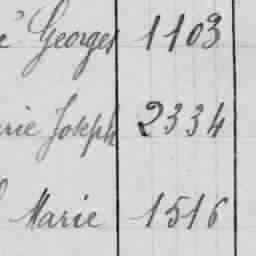 Georges 1103
rie Joseph 2334
Marie 1516